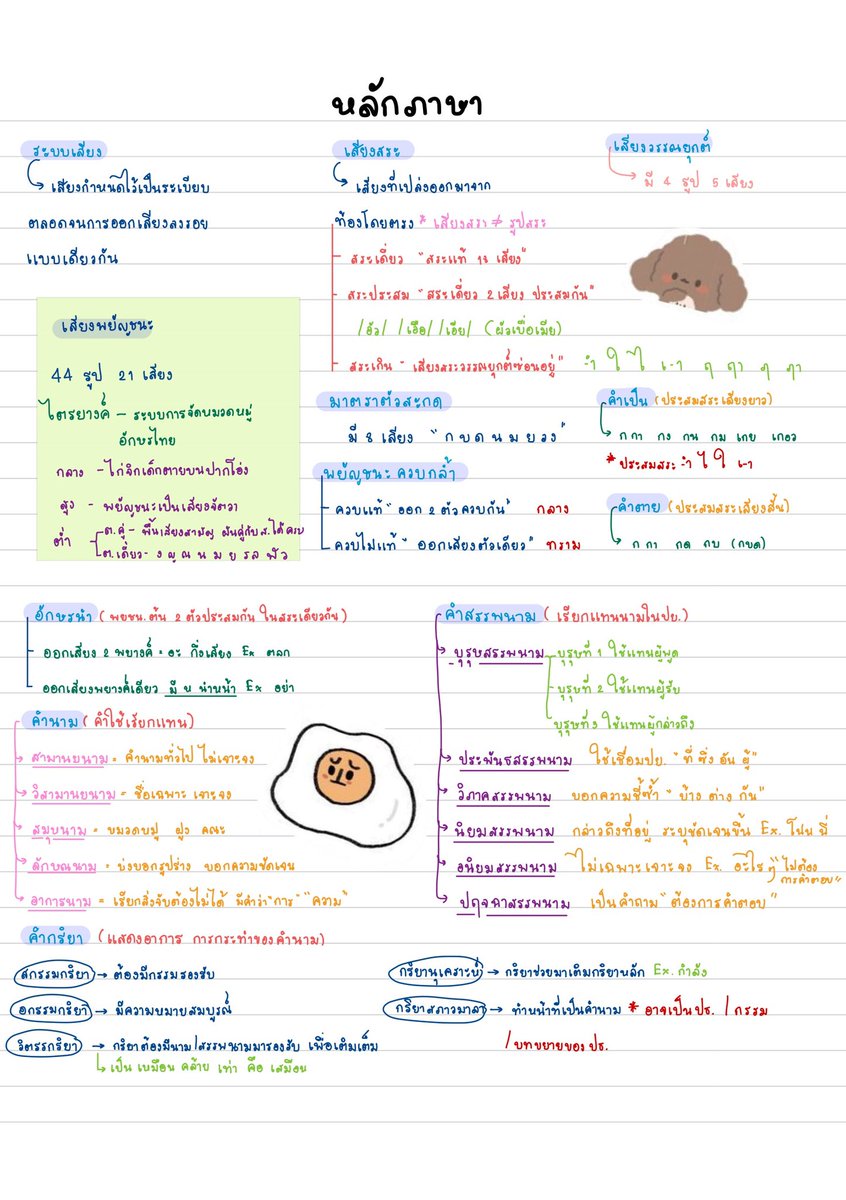 หลักภาษา
ระบบเสียง
เสียงกำหนดไว้เป็นระเบียบ
ตลอดจนการออกเสียงลงรอย
แบบเดียวกัน
เสียงพยัญชนะ
44 รูป 21 เสียง
ไตรยางค์ - ระบบการจัดหมวดหมู่
อักษรไทย
กลาง - ไก่จิกเด็กตายบนปากโอ่ง
สูง - พยัญชนะเป็นเสียงจัตวา
ต่ำ
ต.คู่ - พื้นเสียงสามัญ ผันคู่กับส.ได้ครบ
ต.เดี่ยว - ง ญ ณ น ม ย ร ล ฬ ว
เสียงสระ
เสียงที่เปล่งออกมาจาก
ท้องโดยตรง * เสียงสระ ≠ รูปสระ
สระเดี่ยว "สระแท้ 18 เสียง"
สระประสม "สระเดี่ยว 2 เสียง ประสมกัน"
/อัว/ /เอือ/ /เอีย/ (ผัวเบื่อเมีย)
สระเกิน - เสียงสระวรรณยุกต์ซ่อนอยู่" -ำ ใ ไ เ-า ฤ ฤๅ ฦ ฦๅ
เสียงวรรณยุกต์
มี 4 รูป 5 เสียง
มาตราตัวสะกด
มี 8 เสียง "ก บ ด น ม ย ว ง"
พยัญชนะควบกล้ำ
ควบแท้ "ออก 2 ตัวควบกัน" กลาง
ควบไม่แท้ "ออกเสียงตัวเดียว" ทราม
คำเป็น (ประสมสระเสียงยาว)
ก กา กง กน กม เกย เกอว
* ประสมสระ -ำ ไ ใ เ-า
คำตาย (ประสมสระเสียงสั้น)
ก กา กด กบ (กบด)
อักษรนำ (พยชน.ต้น 2 ตัวประสมกัน ในสระเดียวกัน)
ออกเสียง 2 พยางค์ = อะ กึ่งเสียง Ex ตลก
ออกเสียงพยางค์เดียว มี ห นำหน้า Ex อย่า
คำนาม (คำใช้เรียกแทน)
สามานยนาม = คำนามทั่วไป ไม่เจาะจง
วิสามานยนาม = ชื่อเฉพาะ เจาะจง
สมุหนาม = หมวดหมู่ ฝูง คณะ
ลักษณนาม = บ่งบอกรูปร่าง บอกความชัดเจน
อาการนาม = เรียกสิ่งจับต้องไม่ได้ มีคำว่า "การ" "ความ"
คำสรรพนาม (เรียกแทนนามในปย.)
บุรุษสรรพนาม
บุรุษที่ 1 ใช้แทนผู้พูด
บุรุษที่ 2 ใช้แทนผู้รับ
บุรุษที่ 3 ใช้แทนผู้กล่าวถึง
ประพันธสรรพนาม ใช้เชื่อมปย. "ที่ ซึ่ง อัน ผู้"
วิภาคสรรพนาม บอกความซ้ำ "บ้าง ต่าง กัน"
นิยมสรรพนาม กล่าวถึงที่อยู่ ระบุชัดเจนขึ้น Ex. โน่น นี่
อนิยมสรรพนาม ไม่เฉพาะเจาะจง Ex. อะไรๆ "ไม่ต้อง
การคำตอบ"
ปฤจฉาสรรพนาม เป็นคำถาม "ต้องการคำตอบ"
คำกริยา (แสดงอาการ การกระทำของคำนาม)
สกรรมกริยา → ต้องมีกรรมรองรับ
อกรรมกริยา → มีความหมายสมบูรณ์
วิตรรถกริยา → กริยาต้องมีนาม/สรรพนามมารองรับ เพื่อเติมเต็ม
เป็น เหมือน คล้าย เท่า คือ เสมือน
กริยานุเคราะห์ → กริยาช่วยมาเติมกริยาหลัก Ex. กำลัง
กริยาสภาวมาลา → ทำหน้าที่เป็นคำนาม * อาจเป็นปธ. / กรรม
/บทขยายของปธ.